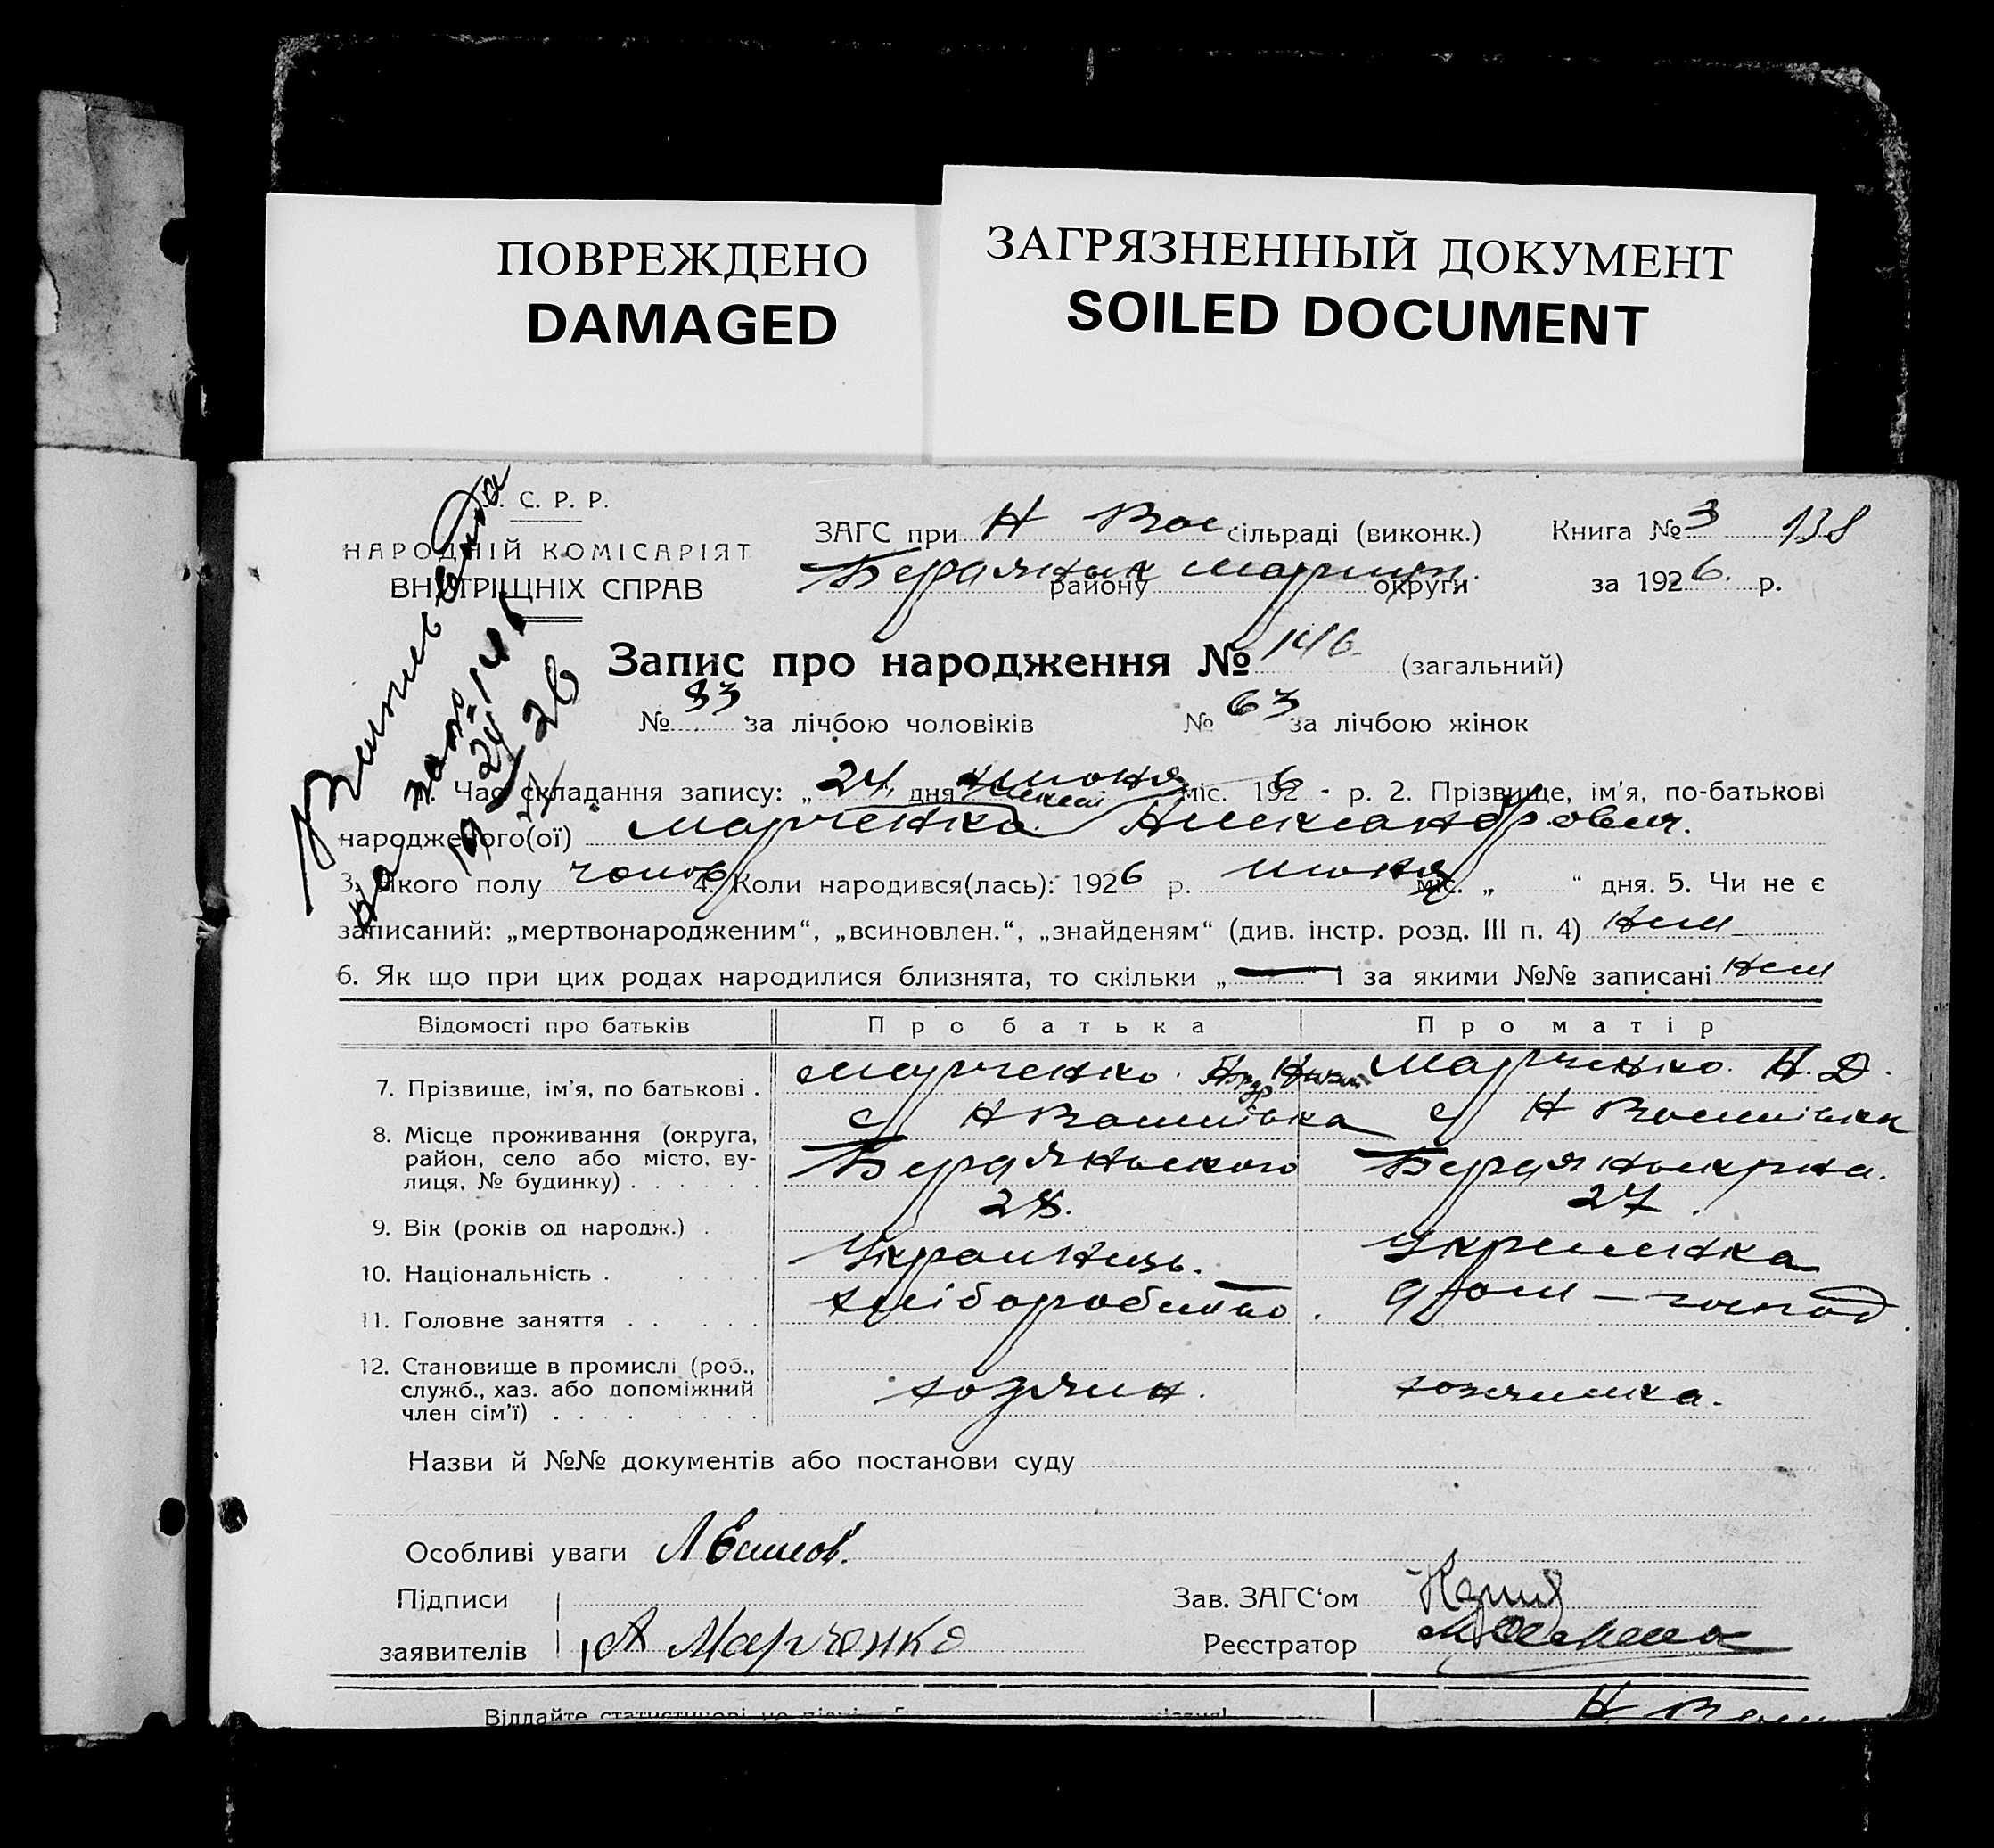 ПОВРЕЖДЕНО
DAMAGED
ЗАГРЯЗНЕННЫЙ ДОКУМЕНТ
SOILED DOCUMENT
С. Р. Р.
НАРОДНІЙ КОМІСАРІЯТ
ВНУТРІШНІХ СПРАВ
ЗАГС при Н Вас сільраді (виконк.)
Бердянськ району Маріуп. округи
Книга № 3 138
за 1926. р.
Запис про народження № 146 (загальний)
№ 83 за лічбою чоловіків № 63 за лічбою жінок
на 146
1. Час складання запису: „24“ дня июня міс. 1926 р. 2. Прізвище, ім’я, по-батькові
народженого(ої) Марченко Александрович.
3. Якого полу чолов 4. Коли народився(лась): 1926 р. июня міс. „ “ дня. 5. Чи не є
записаний: „мертвонародженим“, „всиновлен.“, „знайденям“ (див. інстр. розд. III п. 4) нет
6. Як що при цих родах народилися близнята, то скільки „—“ і за якими №№ записані нет
Відомості про батьків Про батька Про матір
7. Прізвище, ім’я, по батькові . Марченко Марченко Н. Д.
8. Місце проживання (округа, район, село або місто, вулиця, № будинку) . с Н Васил
Бердянського
9. Вік (років од народж.) . 28. 27.
10. Національність . Українець. Українка
11. Головне заняття . . хліборобство. дом – господ
12. Становище в промислі (роб., служб., хаз. або допоміжний член сім’ї) . хозяин. хозяинка.
Назви й №№ документів або постанови суду
Особливі уваги
Підписи заявителів А Марченко
Зав. ЗАГС‘ом
Реєстратор
Віддайте статистичові
Н Вас